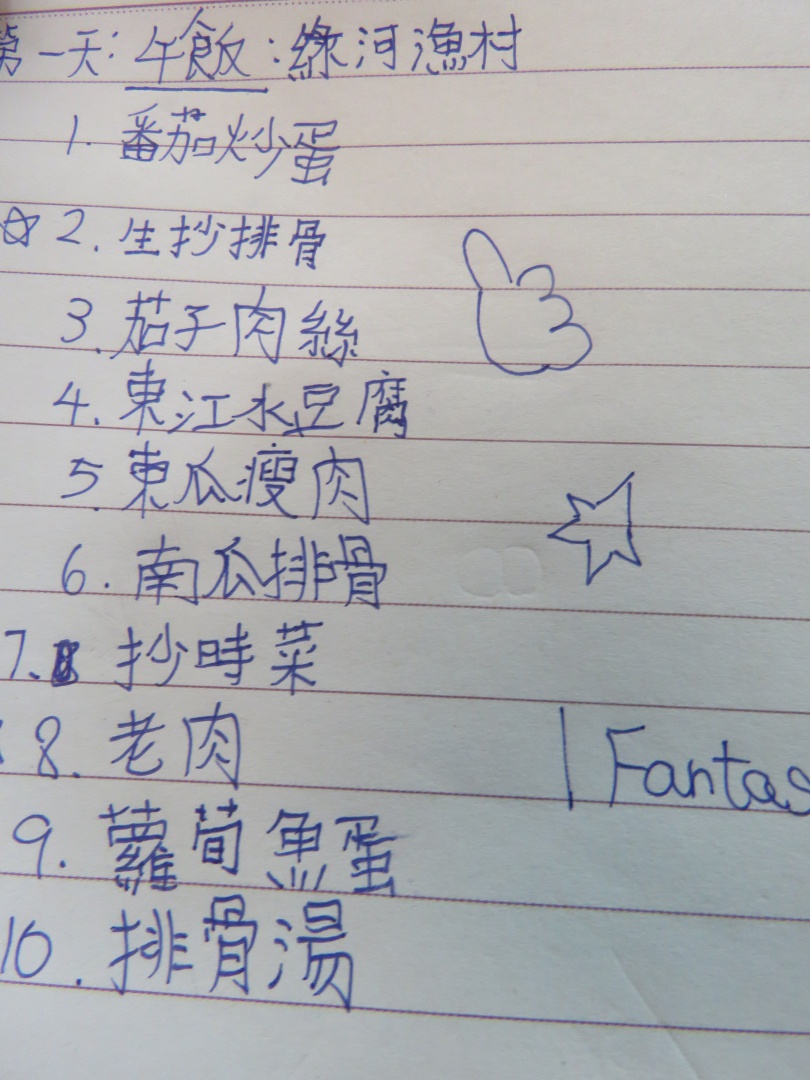 第一天：午飯：綠河漁村
1. 番茄炒蛋
☆ 2. 生抄排骨
3. 茄子肉絲
4. 東江水豆腐
5. 東瓜瘦肉
6. 南瓜排骨
7. 抄時菜
8. 老肉
| Fantas
9. 蘿荀魚蛋
10. 排骨湯